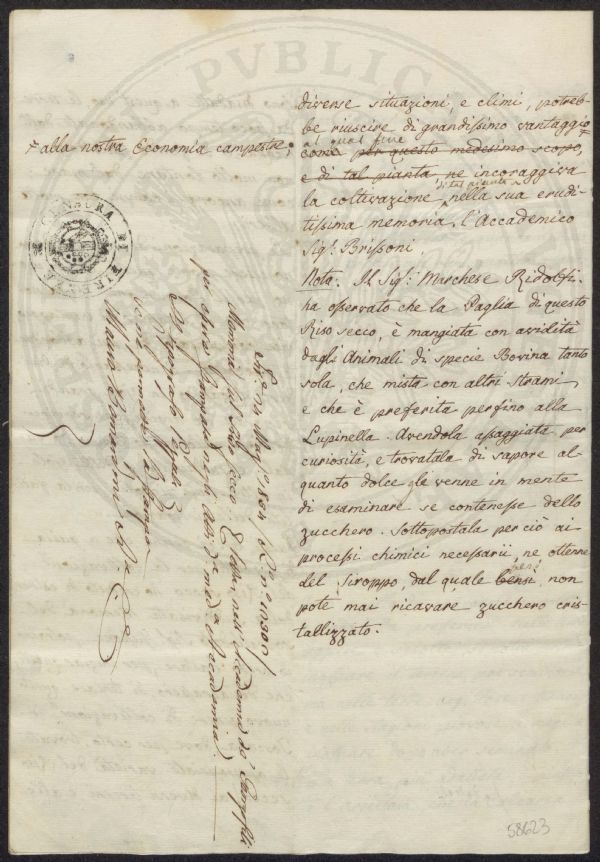 diverse situazioni, e climi, potreb-
be riuscire di grandissimo vantaggio
alla nostra Economia campestre;
al qual fine
come per questo medesimo scopo,
e di tal pianta ne incoraggiva
la coltivazione di tal pianta nella sua erudi-
tissima memoria, l'Accademico
Sig.r Brissoni.
Nota. Il Sig.r Marchese Ridolfi
ha osservato che la Paglia di questo
Riso secco, è mangiata con avidità
dagli Animali di specie Bovina tanto
sola, che mista con altri strami,
e che è preferita perfino alla
Lupinella. Avendola assaggiata per
curiosità, e trovatala di sapore al-
quanto dolce gle venne in mente
di esaminare se contenesse dello
zucchero. Sottopostala perciò ai
processi chimici necessarii, ne ottenne
del Siroppo, dal quale bensì, non
poté mai ricavare zucchero cris-
tallizzato.
CENSURA DI FIRENZE
Memoria sul Riso secco
nell'Accademia de' Georgofili
per essere stampata negli Atti di med.a Accademia
Si approva
e se ne permette la stampa
Mauro Bernardini
PVBLIC
58623